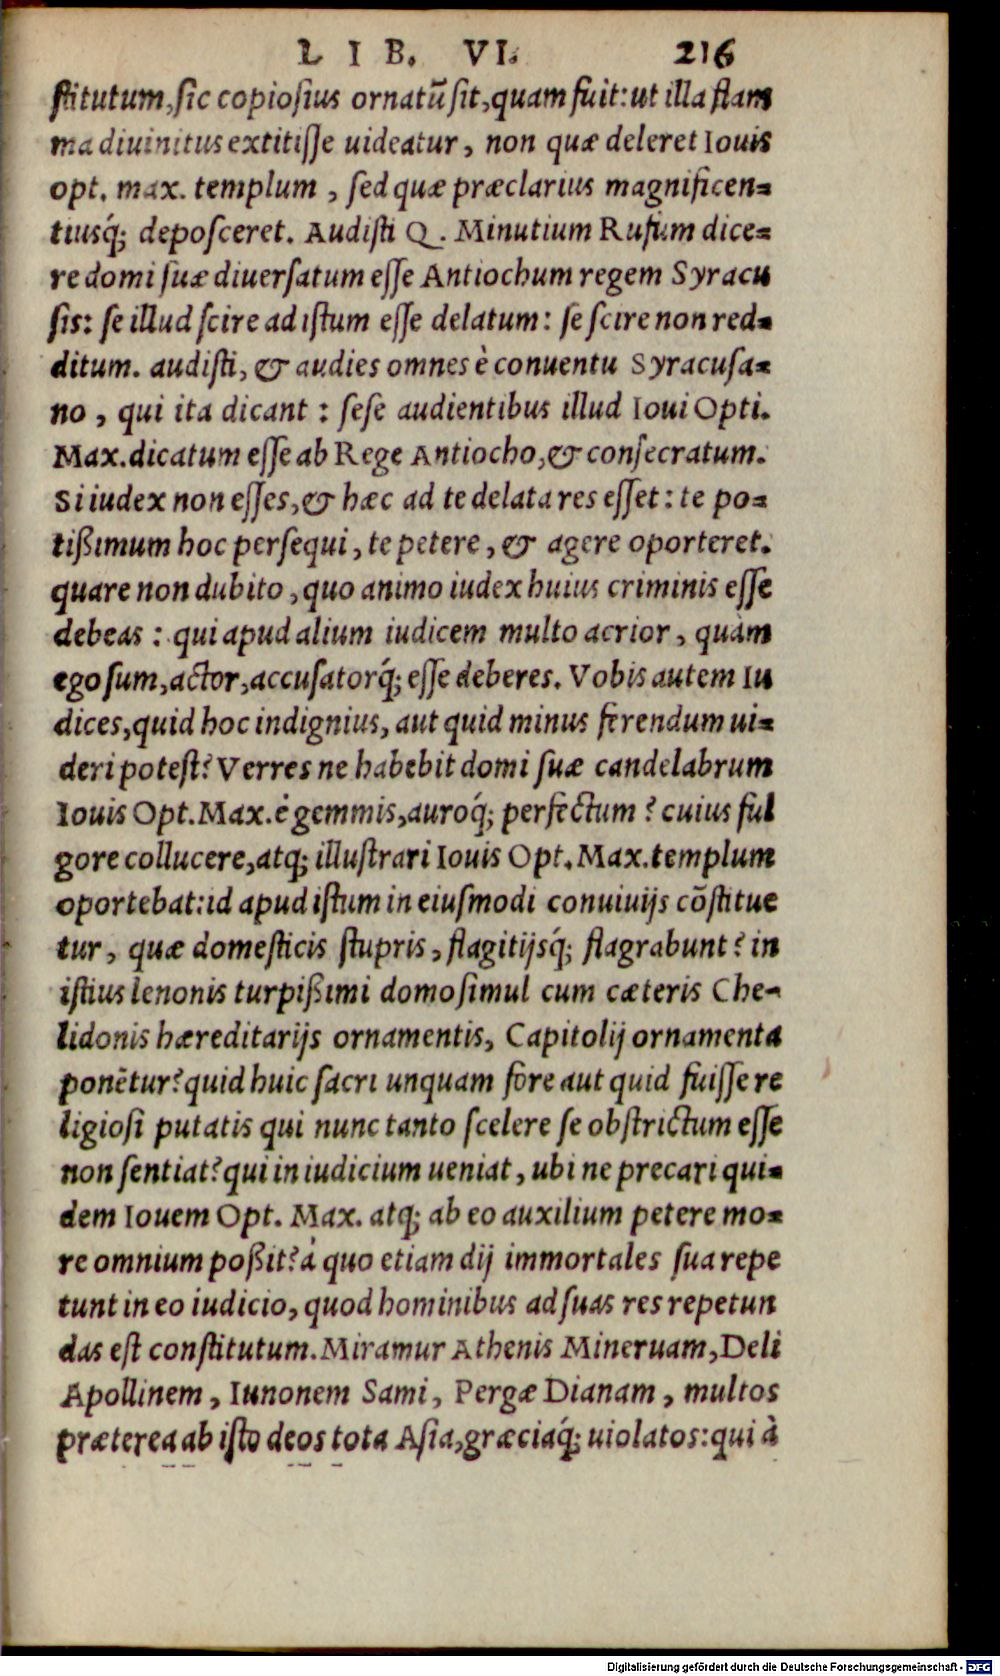 LIB. VI. 216
ſtitutum, ſic copioſius ornatũ ſit, quam fuit: ut illa flam
ma diuinitus extitiſſe uideatur, non quæ deleret Iouis
opt. max. templum, ſed quæ præclarius magnificen=
tiusq́; depoſceret. Audiſti Q. Minutium Rufum dice=
re domi ſuæ diuerſatum eſſe Antiochum regem Syracu
ſis: ſe illud ſcire ad iſtum eſſe delatum: ſe ſcire non red=
ditum. audiſti, & audies omnes è conuentu Syracuſa=
no, qui ita dicant: ſeſe audientibus illud Ioui Opti.
Max. dicatum eſſe ab Rege Antiocho, & conſecratum.
Si iudex non eſſes, & hæc ad te delata res eſſet: te po=
tißimum hoc perſequi, te petere, & agere oporteret.
quare non dubito, quo animo iudex huius criminis eſſe
debeas: qui apud alium iudicem multo acrior, quàm
ego ſum, actor, accuſatorq́; eſſe deberes. Vobis autem Iu
dices, quid hoc indignius, aut quid minus ferendum ui=
deri poteſt? Verres ne habebit domi ſuæ candelabrum
Iouis Opt. Max. è gemmis, auroq́; perfectum? cuius ful
gore collucere, atq; illuſtrari Iouis Opt. Max. templum
oportebat: id apud iſtum in eiuſmodi conuiuijs cõſtitue
tur, quæ domeſticis ſtupris, flagitijsq́; flagrabunt? in
iſtius lenonis turpißimi domo ſimul cum cæteris Che-
lidonis hæreditarijs ornamentis, Capitolij ornamenta
ponẽtur? quid huic ſacri unquam fore aut quid fuiſſe re
ligioſi putatis qui nunc tanto ſcelere ſe obſtrictum eſſe
non ſentiat? qui in iudicium ueniat, ubi ne precari qui=
dem Iouem Opt. Max. atq; ab eo auxilium petere mo=
re omnium poßit? à quo etiam dij immortales ſua repe
tunt in eo iudicio, quod hominibus ad ſuas res repetun
das eſt conſtitutum. Miramur Athenis Mineruam, Deli
Apollinem, Iunonem Sami, Pergæ Dianam, multos
præterea ab iſto deos tota Aſia, græciaq́; uiolatos: qui à
Digitalisierung gefördert durch die Deutsche Forschungsgemeinschaft - DFG